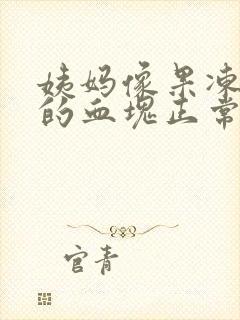 姨妈像果冻
的血块正常
官青